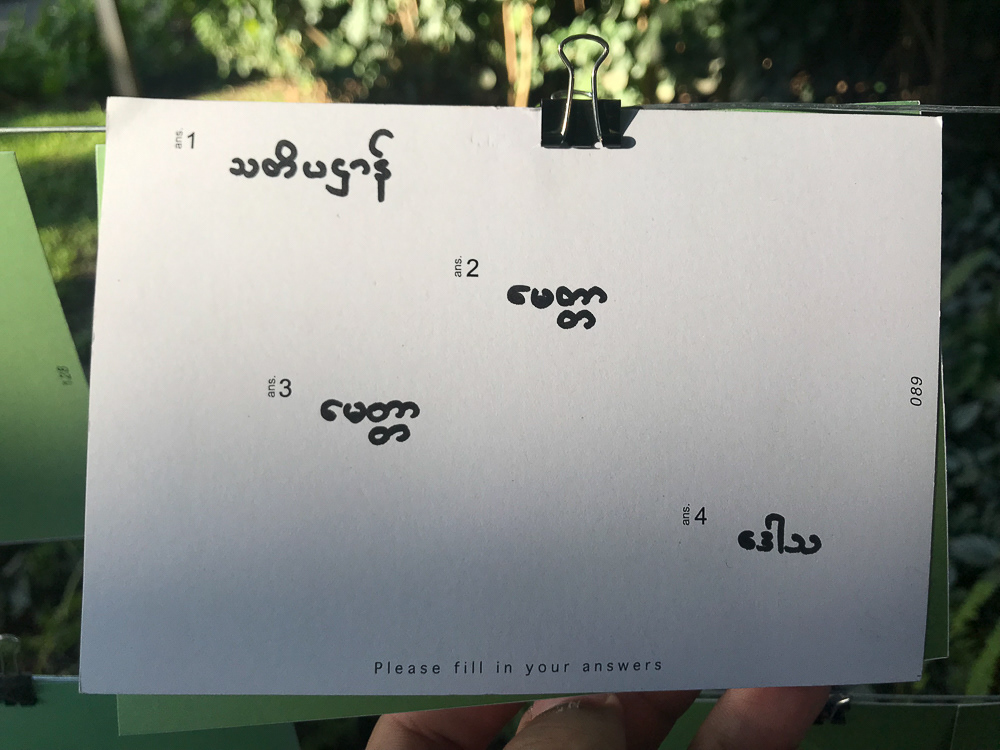 ans. 1
သတိပဋ္ဌာန်
ans. 2
မေတ္တာ
ans. 3
မေတ္တာ
ans. 4
ဒေါသ
089
Please fill in your answers